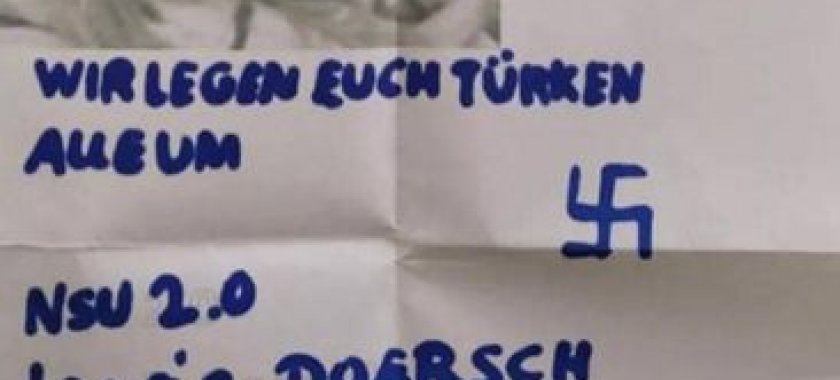 WIR LEGEN EUCH TÜRKEN
ALLE UM
NSU 2.0
DOERSCH